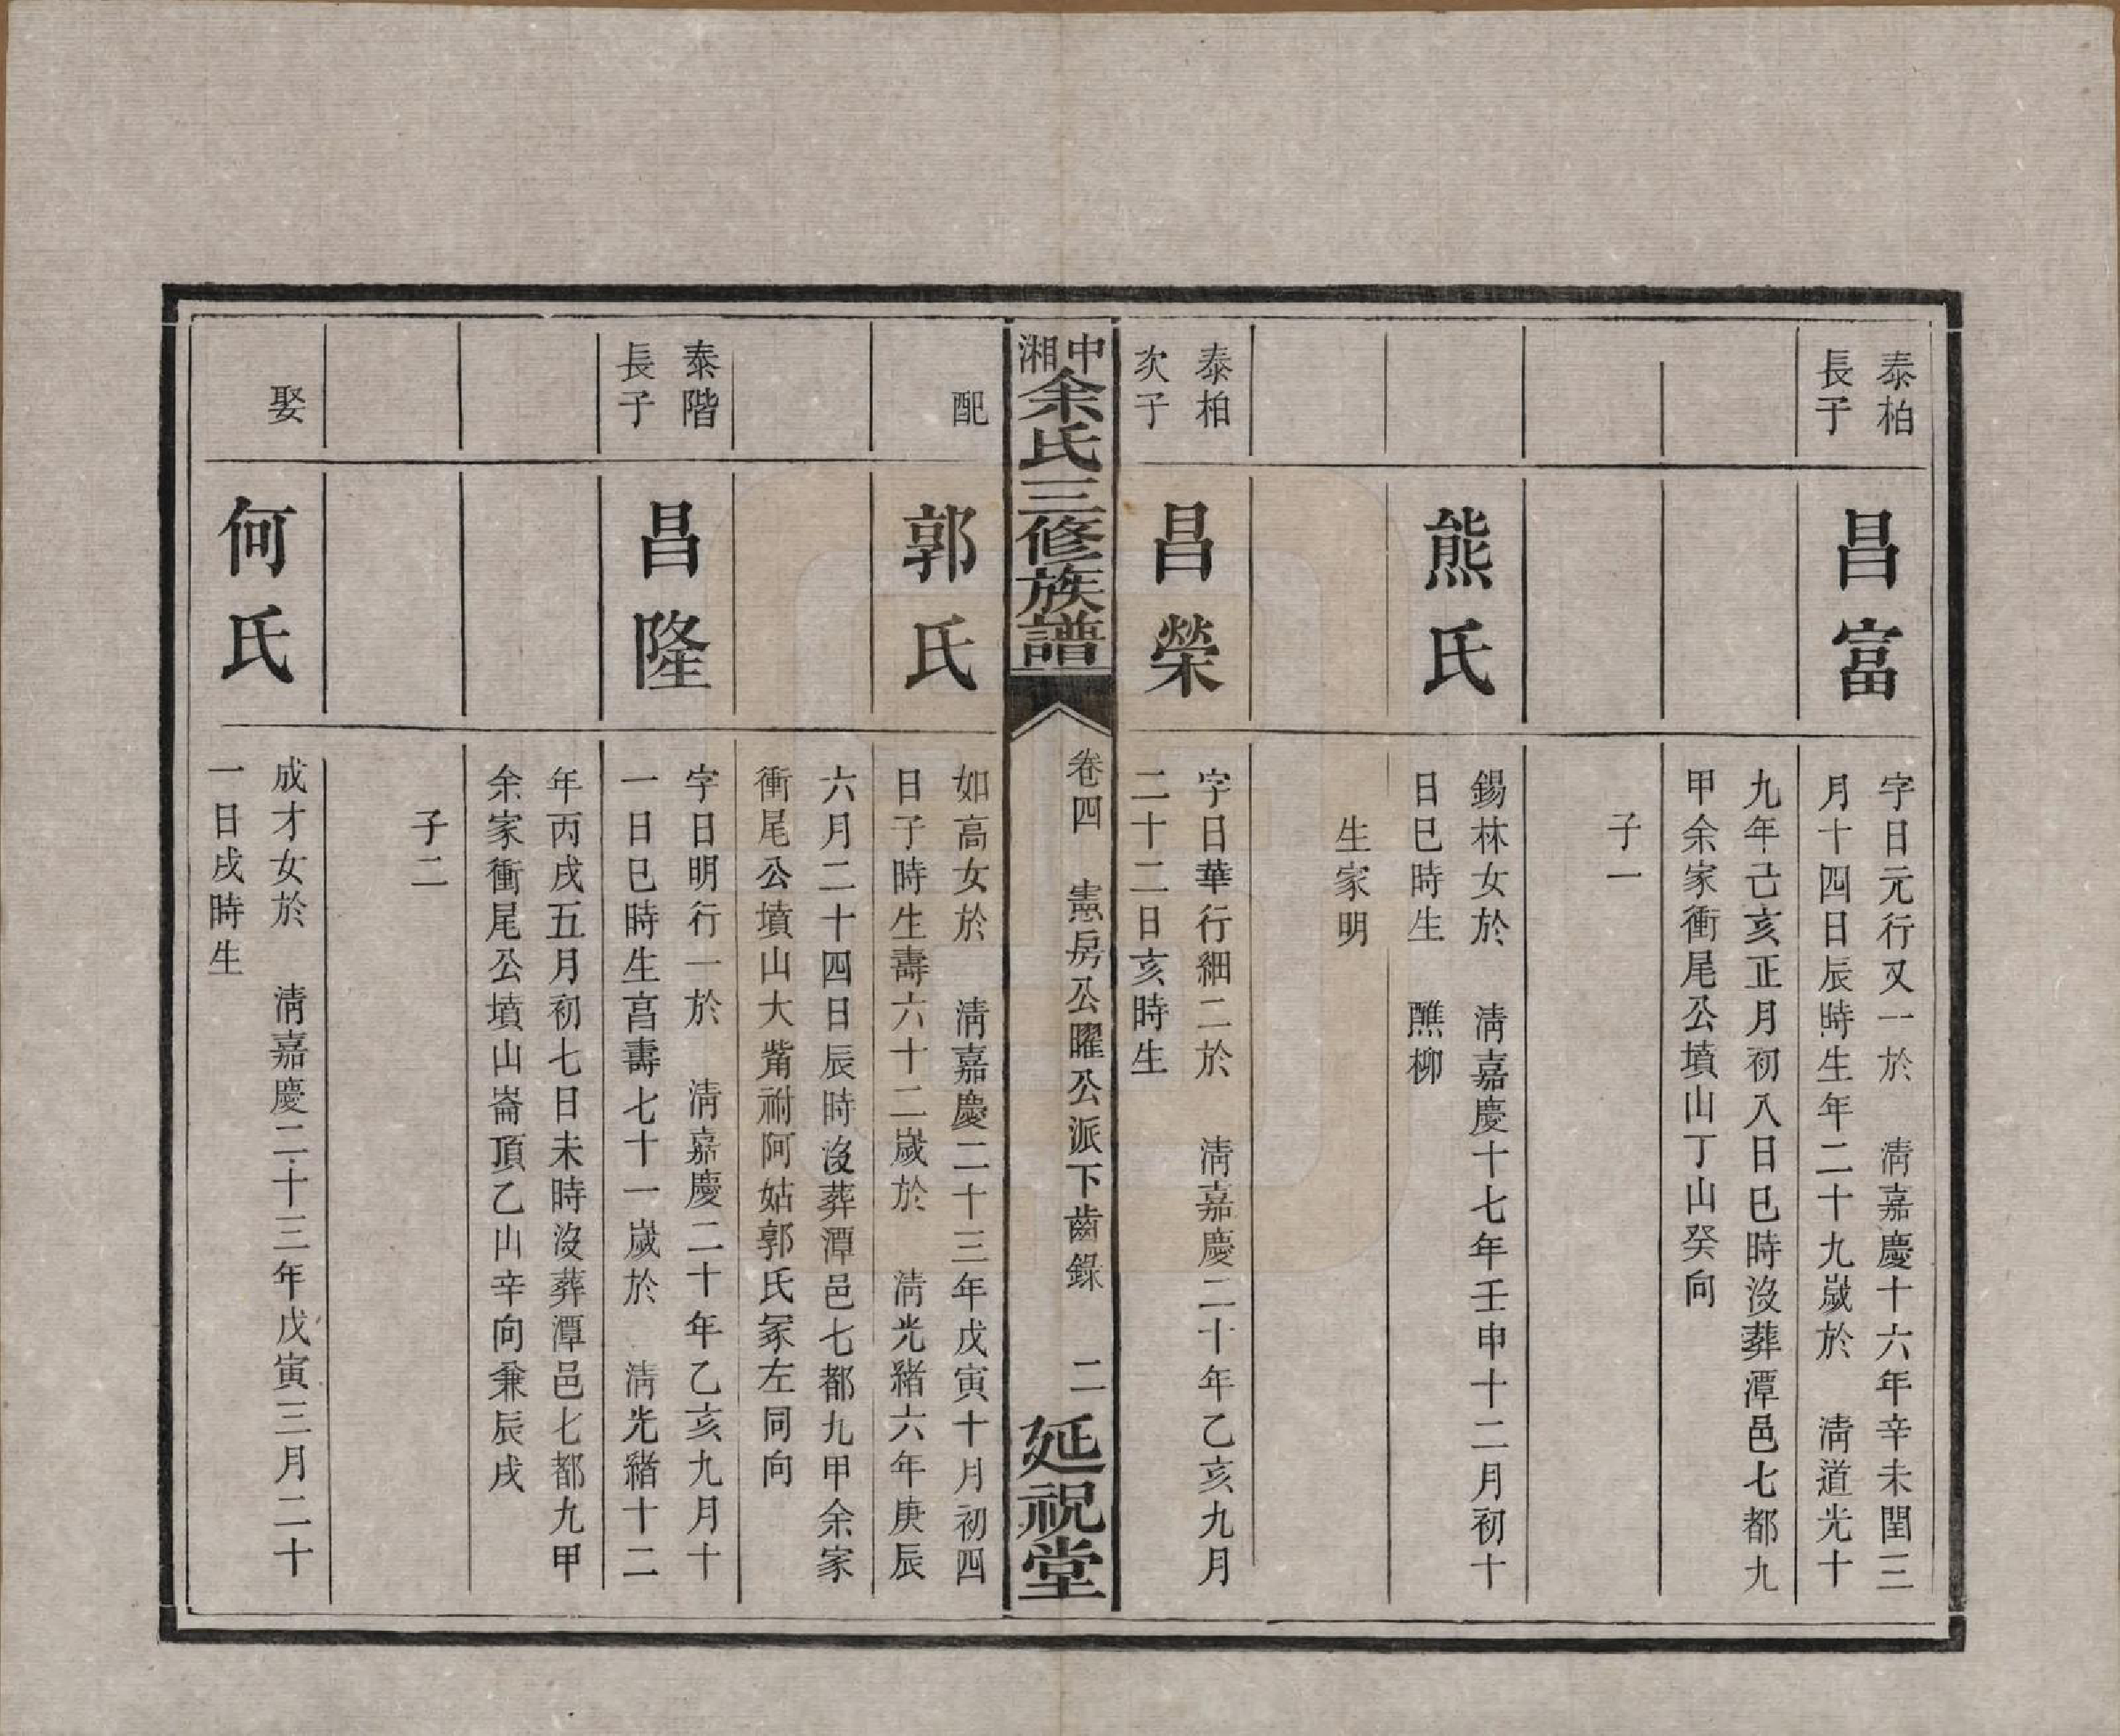 泰柏
長子
昌富
字日元行又一於　清嘉慶十六年辛未閏三
月十四日辰時生年二十九嵗於　清道光十
九年己亥正月初入日巳時沒葬潭邑七都九
甲余家衝尾公墳山丁山癸向
子一
熊氏
錫林女於　清嘉慶十七年壬申十二月初十
日巳時生　醮柳
生家明
泰柏
次子
昌榮
字日華行細二於　清嘉慶二十年乙亥九月
二十二日亥時生
中湘余氏三修族譜
卷四　憲房公曜公派下齒錄　二
延祝堂
配
郭氏
如高女於　清嘉慶二十三年戊寅十月初四
日子時生壽六十二嵗於　清光緒六年庚辰
六月二十四日辰時沒葬潭邑七都九甲余家
衝尾公墳山大觜祔阿姑郭氏冢左同向
泰階
長子
昌隆
字日明行一於　清嘉慶二十年乙亥九月十
一日巳時生亯壽七十一嵗於　清光緒十二
年丙戌五月初七日未時沒葬潭邑七都九甲
余家衝尾公墳山崙頂乙山辛向兼辰戌
子二
娶
何氏
成才女於　清嘉慶二十三年戊寅三月二十
一日戌時生